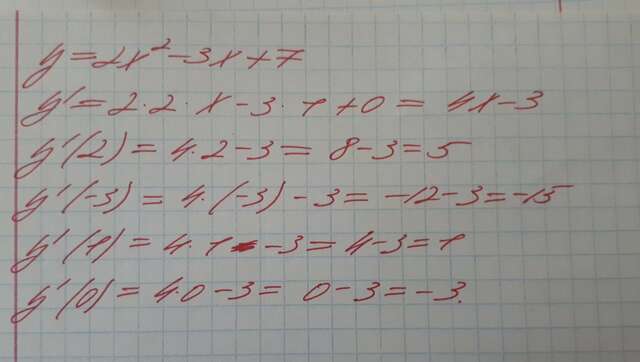 y = 2x² - 3x + 7
y' = 2 · 2 · x - 3 · 1 + 0 = 4x - 3
y'(2) = 4 · 2 - 3 = 8 - 3 = 5
y'(-3) = 4 · (-3) - 3 = -12 - 3 = -15
y'(1) = 4 · 1 - 3 = 4 - 3 = 1
y'(0) = 4 · 0 - 3 = 0 - 3 = -3.